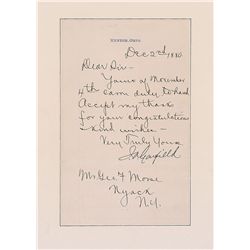 MENTOR, OHIO.
Dec 2nd 1880.
Dear Sir—
Yours of November
4th came duly to hand
Accept my thanks
for your congratulations
& kind wishes—
Very Truly Yours
J A Garfield
Mr Geo. F Morse
Nyack
N.Y.